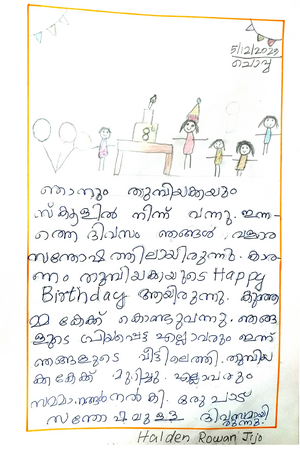 5/12/2023
ചൊവ്വ
8
ഞാനും തുമ്പിയക്കയും
സ്കൂളിൽ നിന്ന് വന്നു. ഇന്ന-
ത്തെ ദിവസം ഞങ്ങൾ വളരെ
സന്തോഷത്തിലായിരുന്നു. കാര-
ണം തുമ്പിയക്കയുടെ Happy
Birthday ആയിരുന്നു. കുഞ്ഞ
മ്മ കേക്ക് കൊണ്ടുവന്നു. ഞങ്ങ
ളുടെ പ്രിയപ്പെട്ട എല്ലാവരും ഇന്ന്
ഞങ്ങളുടെ വീട്ടിലെത്തി. തുമ്പിയ
ക്ക കേക്ക് മുറിച്ചു. എല്ലാവരും
സമ്മാനങ്ങൾ നൽകി. ഒരുപാട്
സന്തോഷവുള്ള ദിവസമായി
രുന്നു.
Halden Rowan Jijo